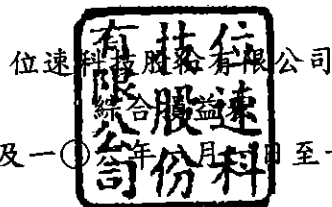 位速科技股份有限公司
綜合損益
及一○年月日至一
位速科
技股份
有限公司